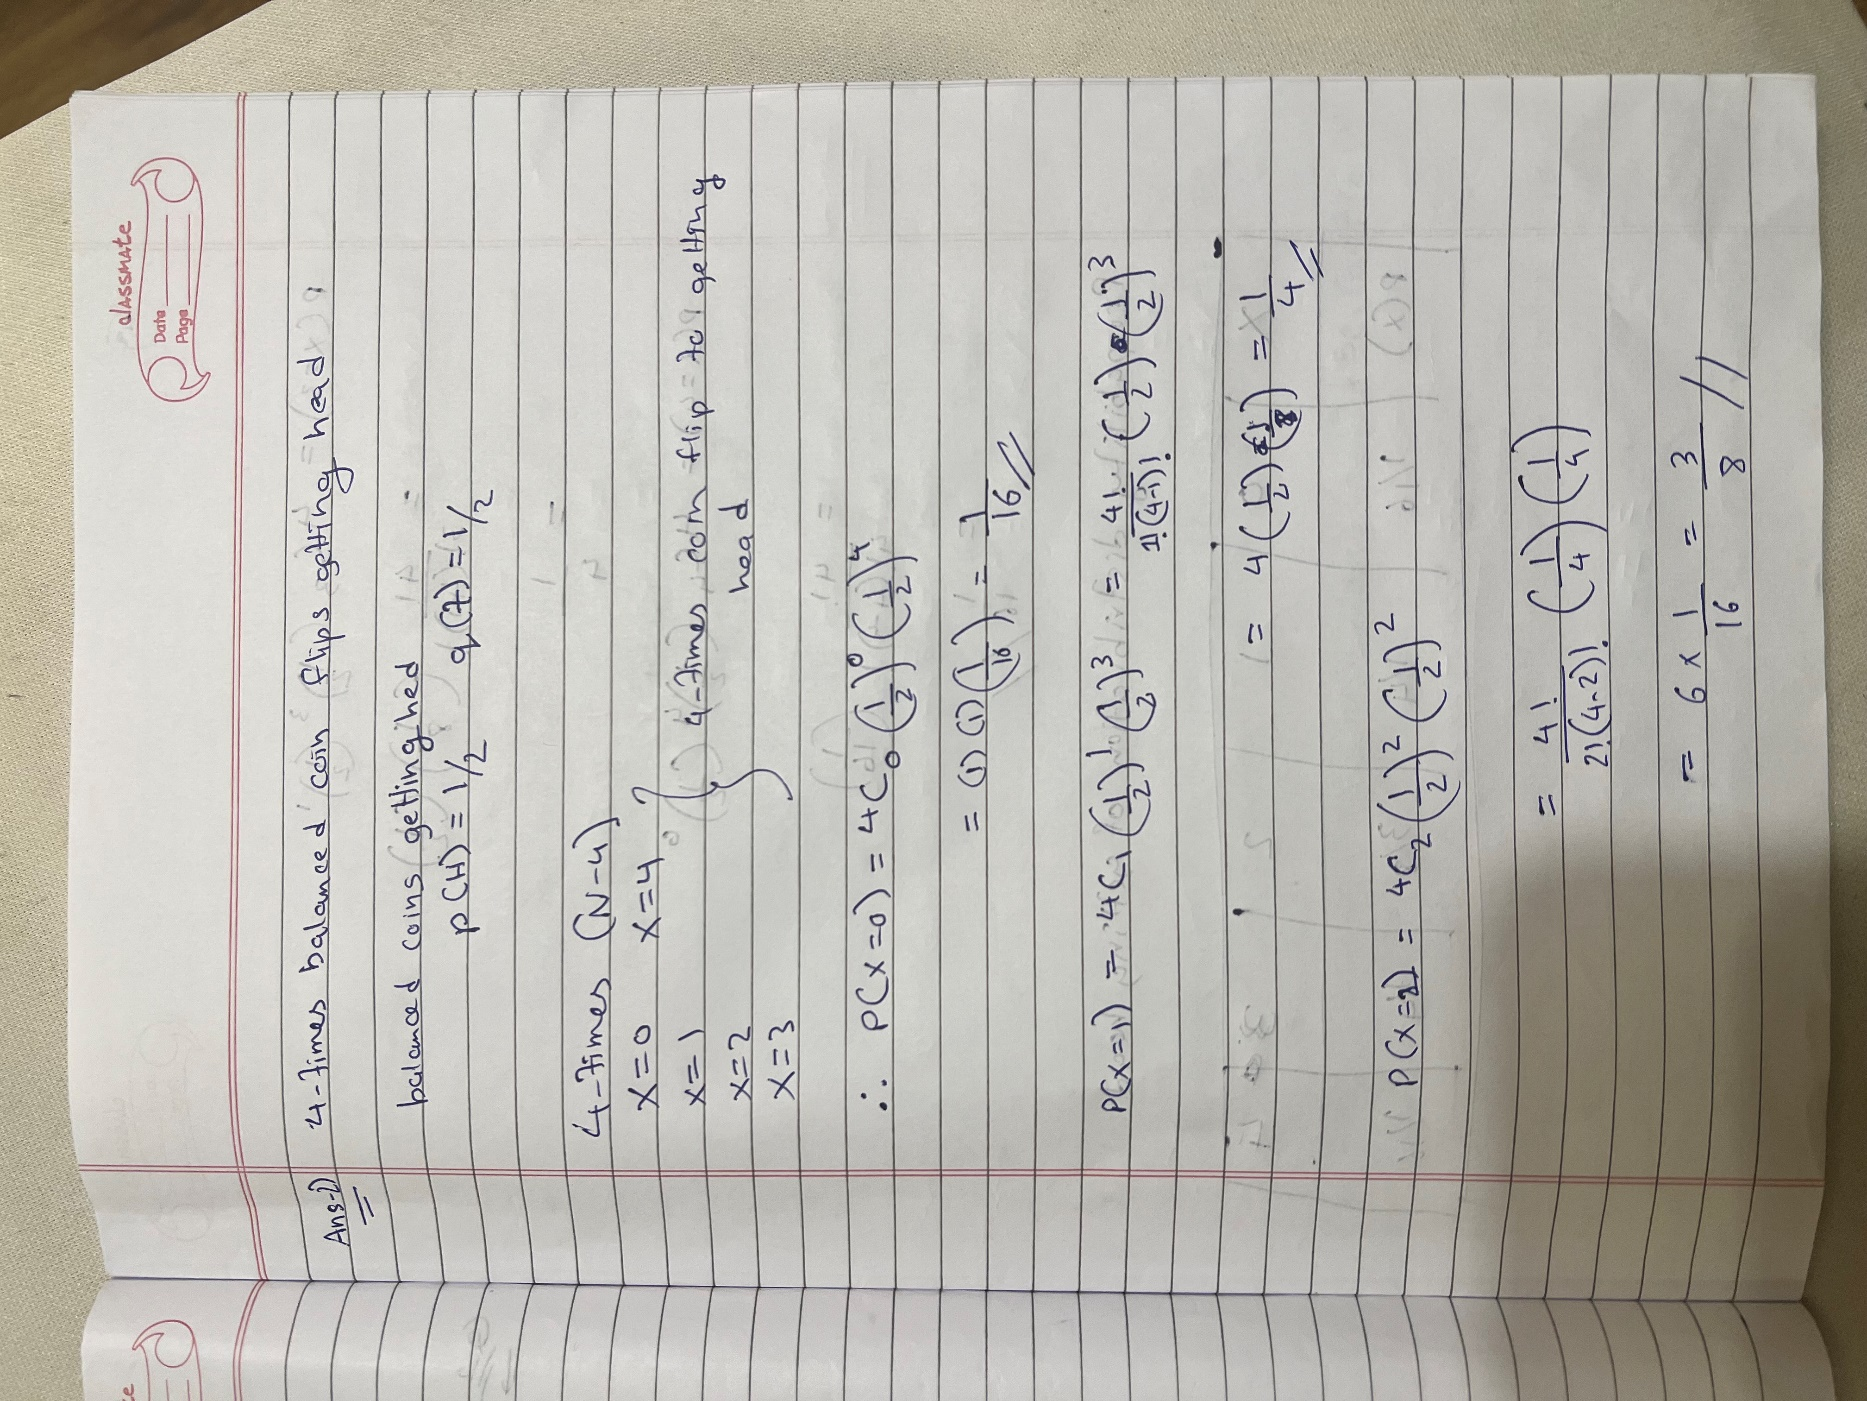 classmate
Date
Page
Ans-2) 4-times balanced coin flips getting head
balanced coins getting hed
p(H) = 1/2 q(T) = 1/2
4-times (N-4)
X=0 X=4
X=1 4-times coin flip to getting
X=2 head
X=3
∴ P(X=0) = 4C₀ (1/2)⁰ (1/2)⁴
= (1) (1) (1/16) = 1/16 //
P(X=1) = 4C₁ (1/2)¹ (1/2)³ = 4!/1!(4-1)! (1/2) (1/2)³
= 4 (1/2) (1/8) = 1/4 //
P(X=2) = 4C₂ (1/2)² (1/2)²
= 4!/2!(4-2)! (1/4) (1/4)
= 6 x 1/16 = 3/8 //